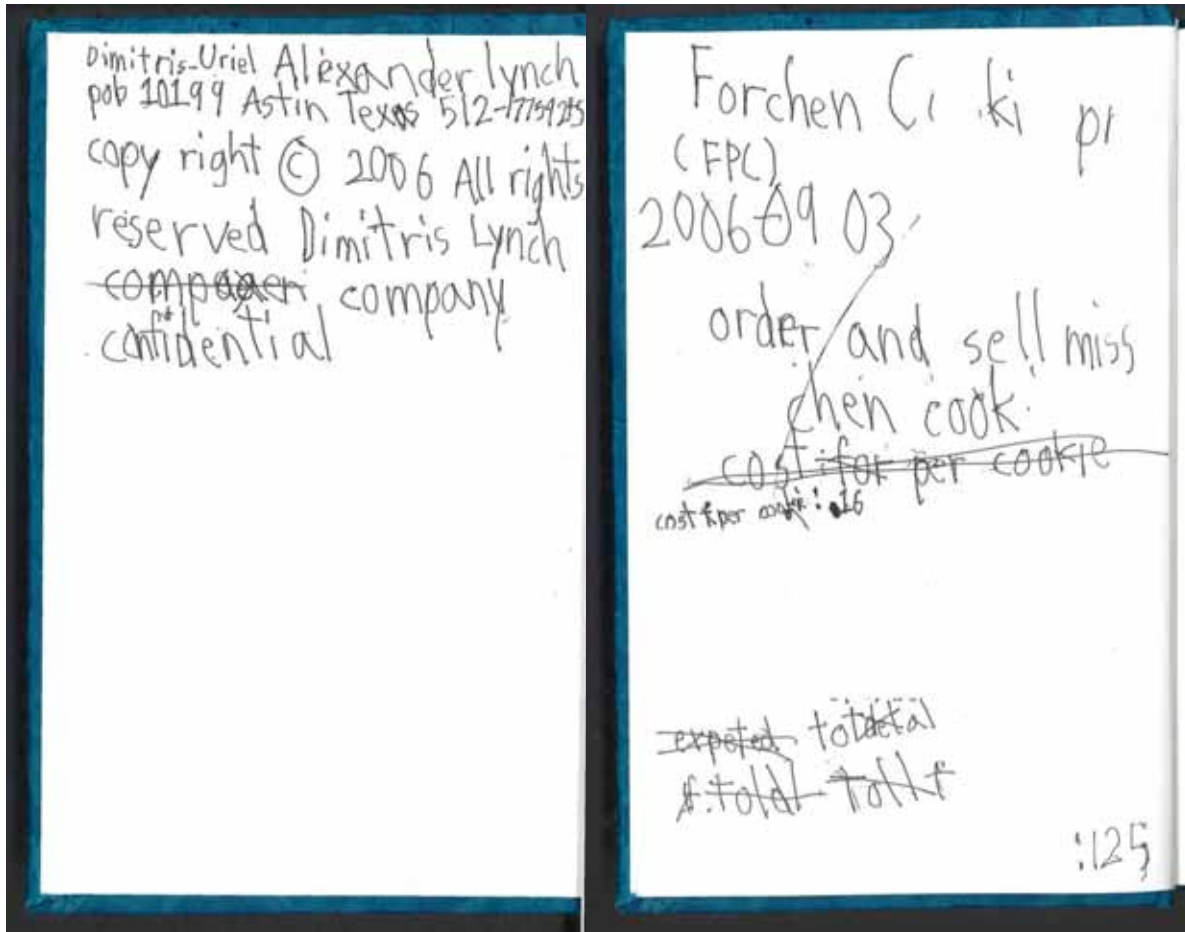 Dimitris-Uriel Alexander lynch
pob 10199 Astin Texas 512-
copy right © 2006 All rights
reserved Dimitris Lynch
company
confidential
Forchen Ci ki pr
(FPC)
2006-09 03
order and sell miss
chen cook
cost for per cookie
cost per : .16
expeted total
:125